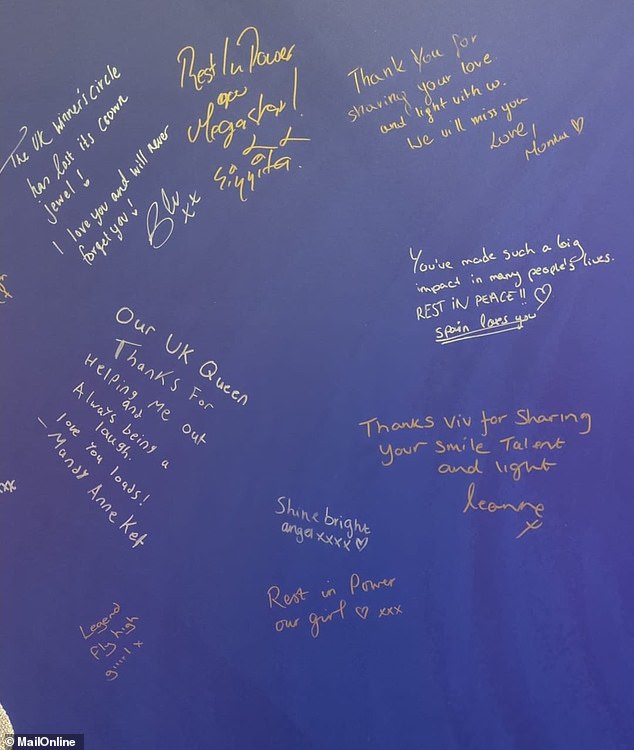 The UK Winner's circle
has lost its crown
jewel!
I love you and will never
forget you!
xx
Rest In Power
Megastar!
Thank You for
sharing your love
and light with us.
We will miss you
Love!
You've made such a big
impact in many people's lives.
REST IN PEACE!! ♡
spain loves you
Our UK Queen
Thanks For
Helping Me out
and
Always being a
laugh.
love You loads!
- Mandy Anne Kef
Thanks Viv for Sharing
Your Smile Talent
and light
leanne
x
Shine bright
angel xxxx ♡
Rest in Power
our girl ♡ xxx
Legend
Fly high
giiirl x
© MailOnline